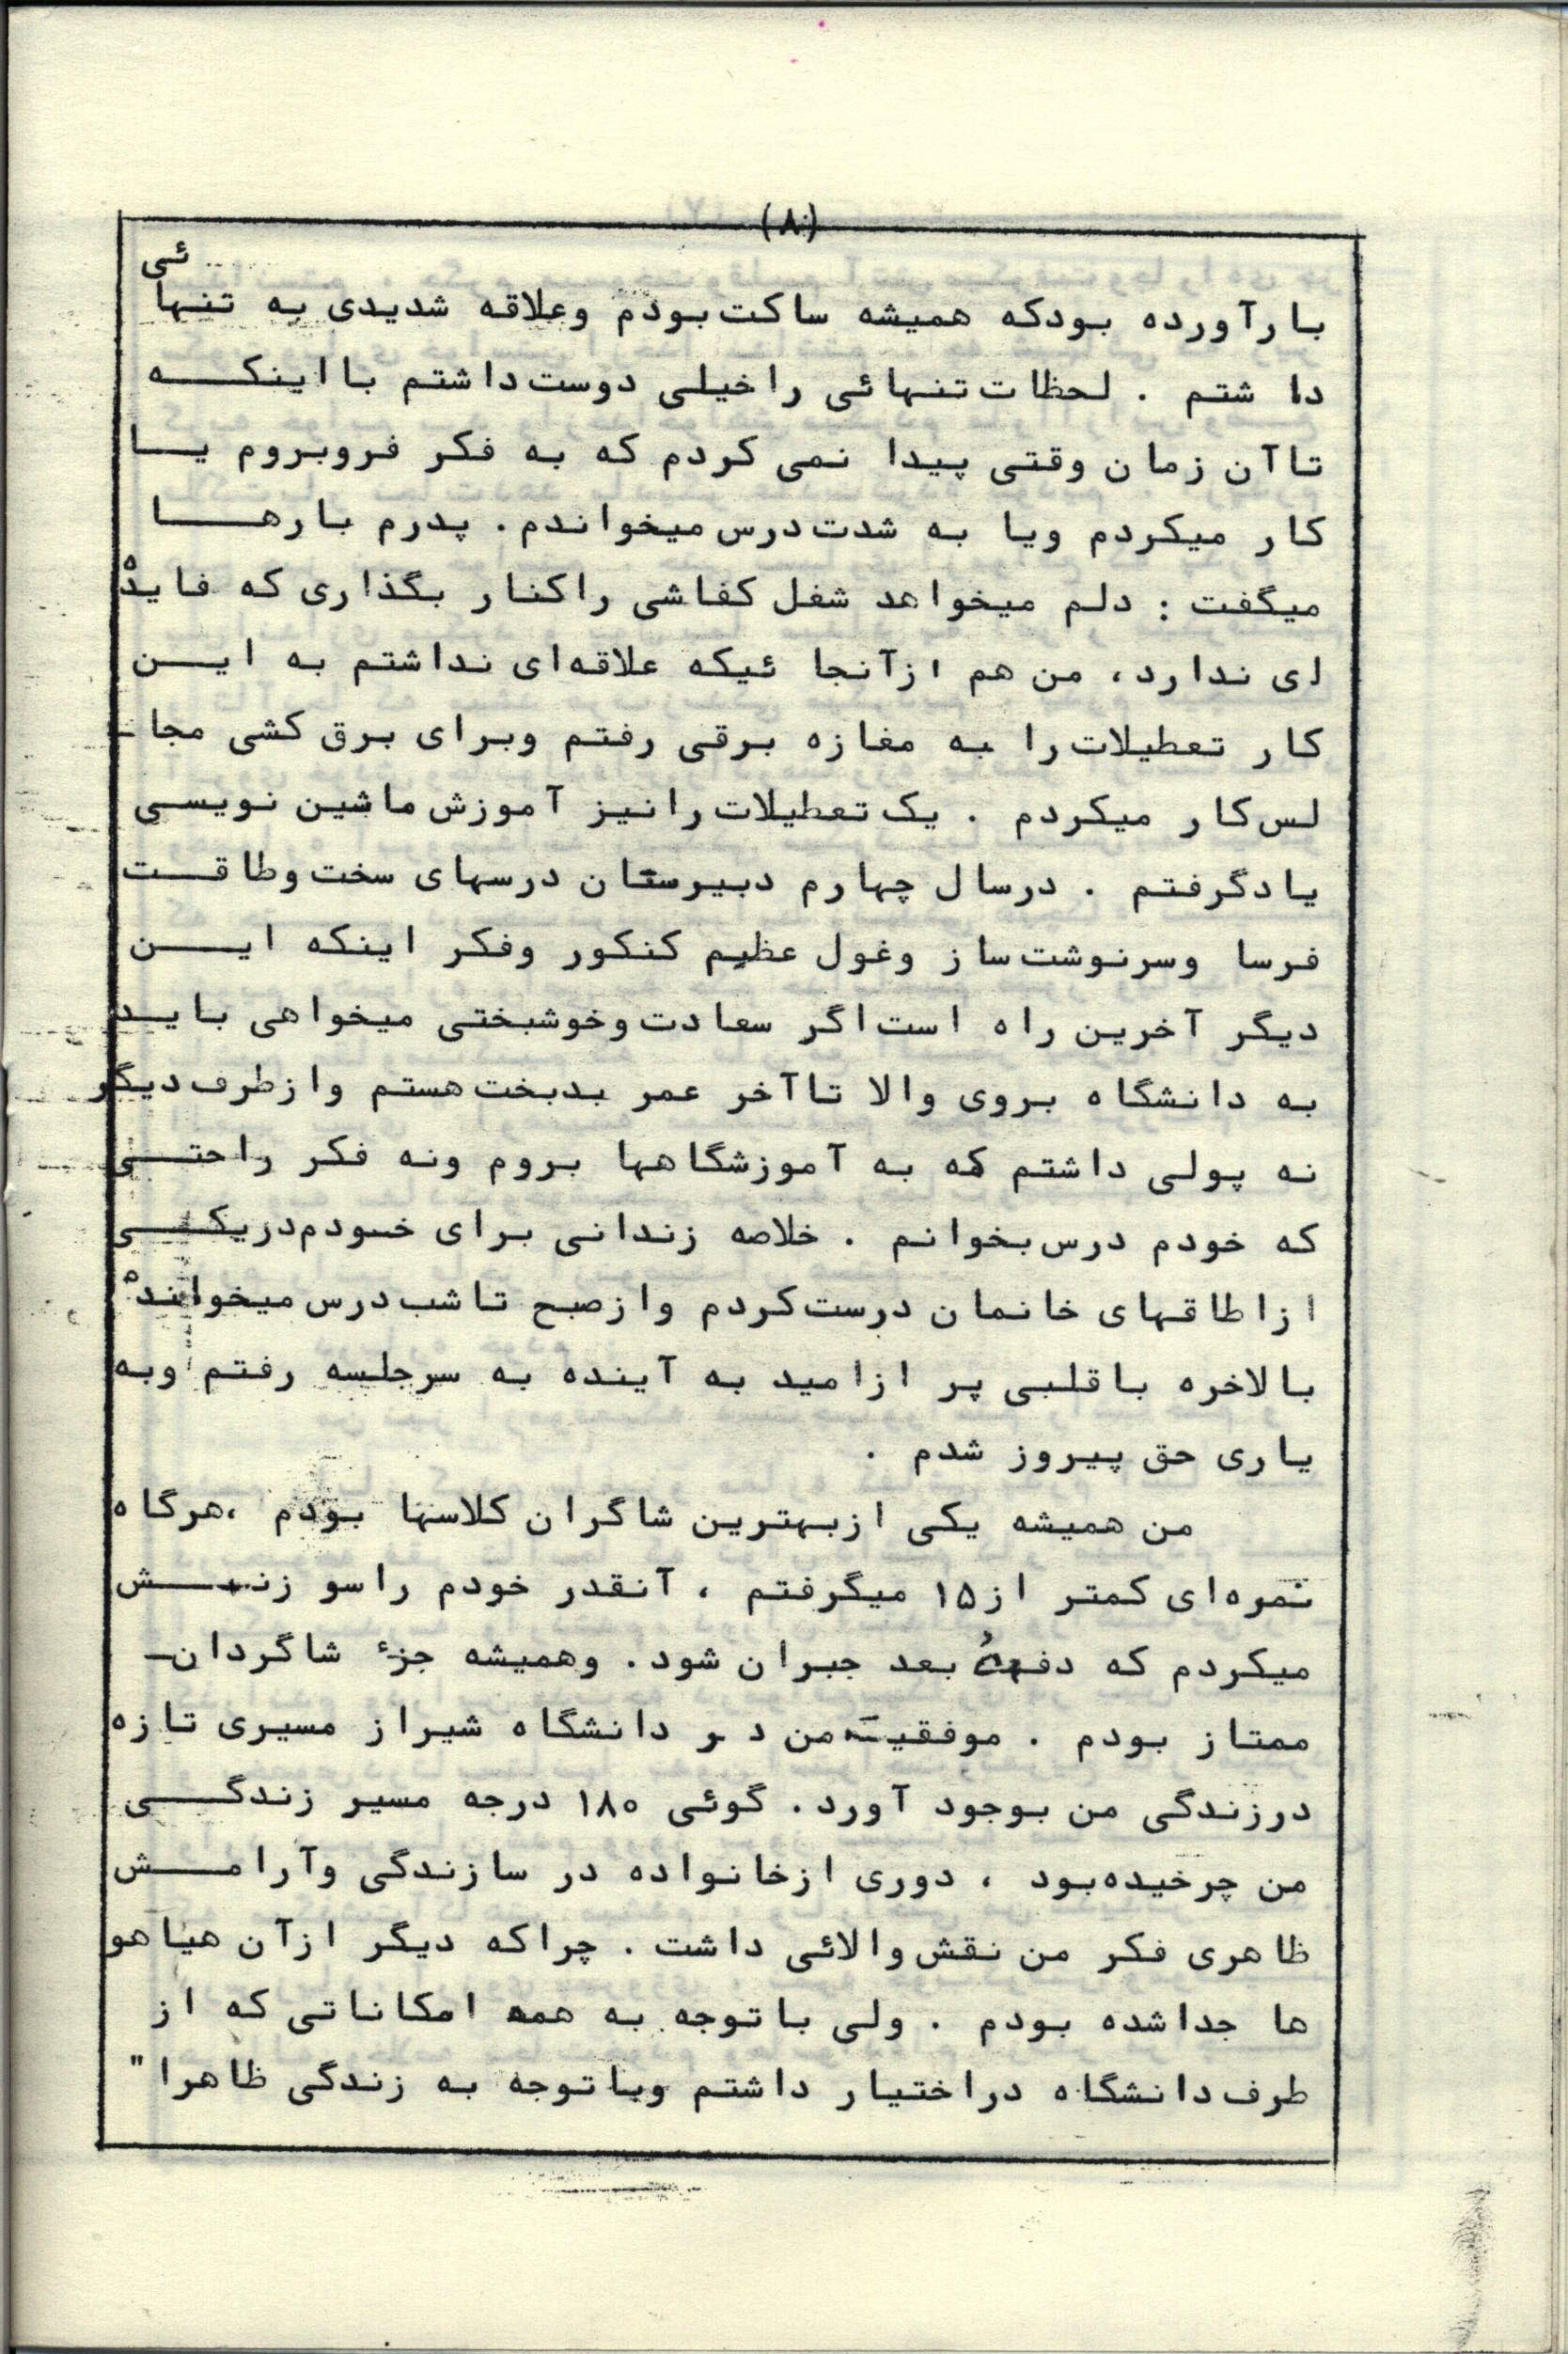 (۸)
بارآورده بودکه همیشه ساکت بودم وعلاقه شدیدی به تنهائی
داشتم . لحظات تنهائی راخیلی دوست داشتم بااینکه
تاآن زمان وقتی پیدا نمی کردم که به فکر فروبروم یا
کار میکردم ویا به شدت درس میخواندم. پدرم بارها
میگفت : دلم میخواهد شغل کفاشی راکنار بگذاری که فایده
ای ندارد، من هم ازآنجا ئیکه علاقه‌ای نداشتم به این
کار تعطیلات را به مغازه برقی رفتم وبرای برق کشی مجا-
لس کار میکردم . یک تعطیلات رانیز آموزش ماشین نویسی
یادگرفتم . درسال چهارم دبیرستان درسهای سخت وطاقت
فرسا وسرنوشت ساز وغول عظیم کنکور وفکر اینکه این
دیگر آخرین راه است اگر سعادت وخوشبختی میخواهی باید
به دانشگاه بروی والا تاآخر عمر بدبخت هستم وازطرف دیگر
نه پولی داشتم که به آموزشگاهها بروم ونه فکر راحتی
که خودم درس بخوانم . خلاصه زندانی برای خودم دریکی
ازاطاقهای خانمان درست کردم وازصبح تاشب درس میخواندم
بالاخره باقلبی پر ازامید به آینده به سرجلسه رفتم وبه
یاری حق پیروز شدم .
من همیشه یکی ازبهترین شاگران کلاسها بودم ،هرگاه
نمره‌ای کمتر از۱۵ میگرفتم ، آنقدر خودم راسو زنش
میکردم که دفعهُ بعد جبران شود. وهمیشه جزء شاگردان-
ممتاز بودم . موفقیت من در دانشگاه شیراز مسیری تازه
درزندگی من بوجود آورد. گوئی ۱۸۰ درجه مسیر زندگی
من چرخیده‌بود ، دوری ازخانواده در سازندگی وآرامش
ظاهری فکر من نقش والائی داشت . چراکه دیگر ازآن هیاهو
ها جداشده بودم . ولی باتوجه به همه امکاناتی که از
طرف دانشگاه دراختیار داشتم وباتوجه به زندگی ظاهرا"